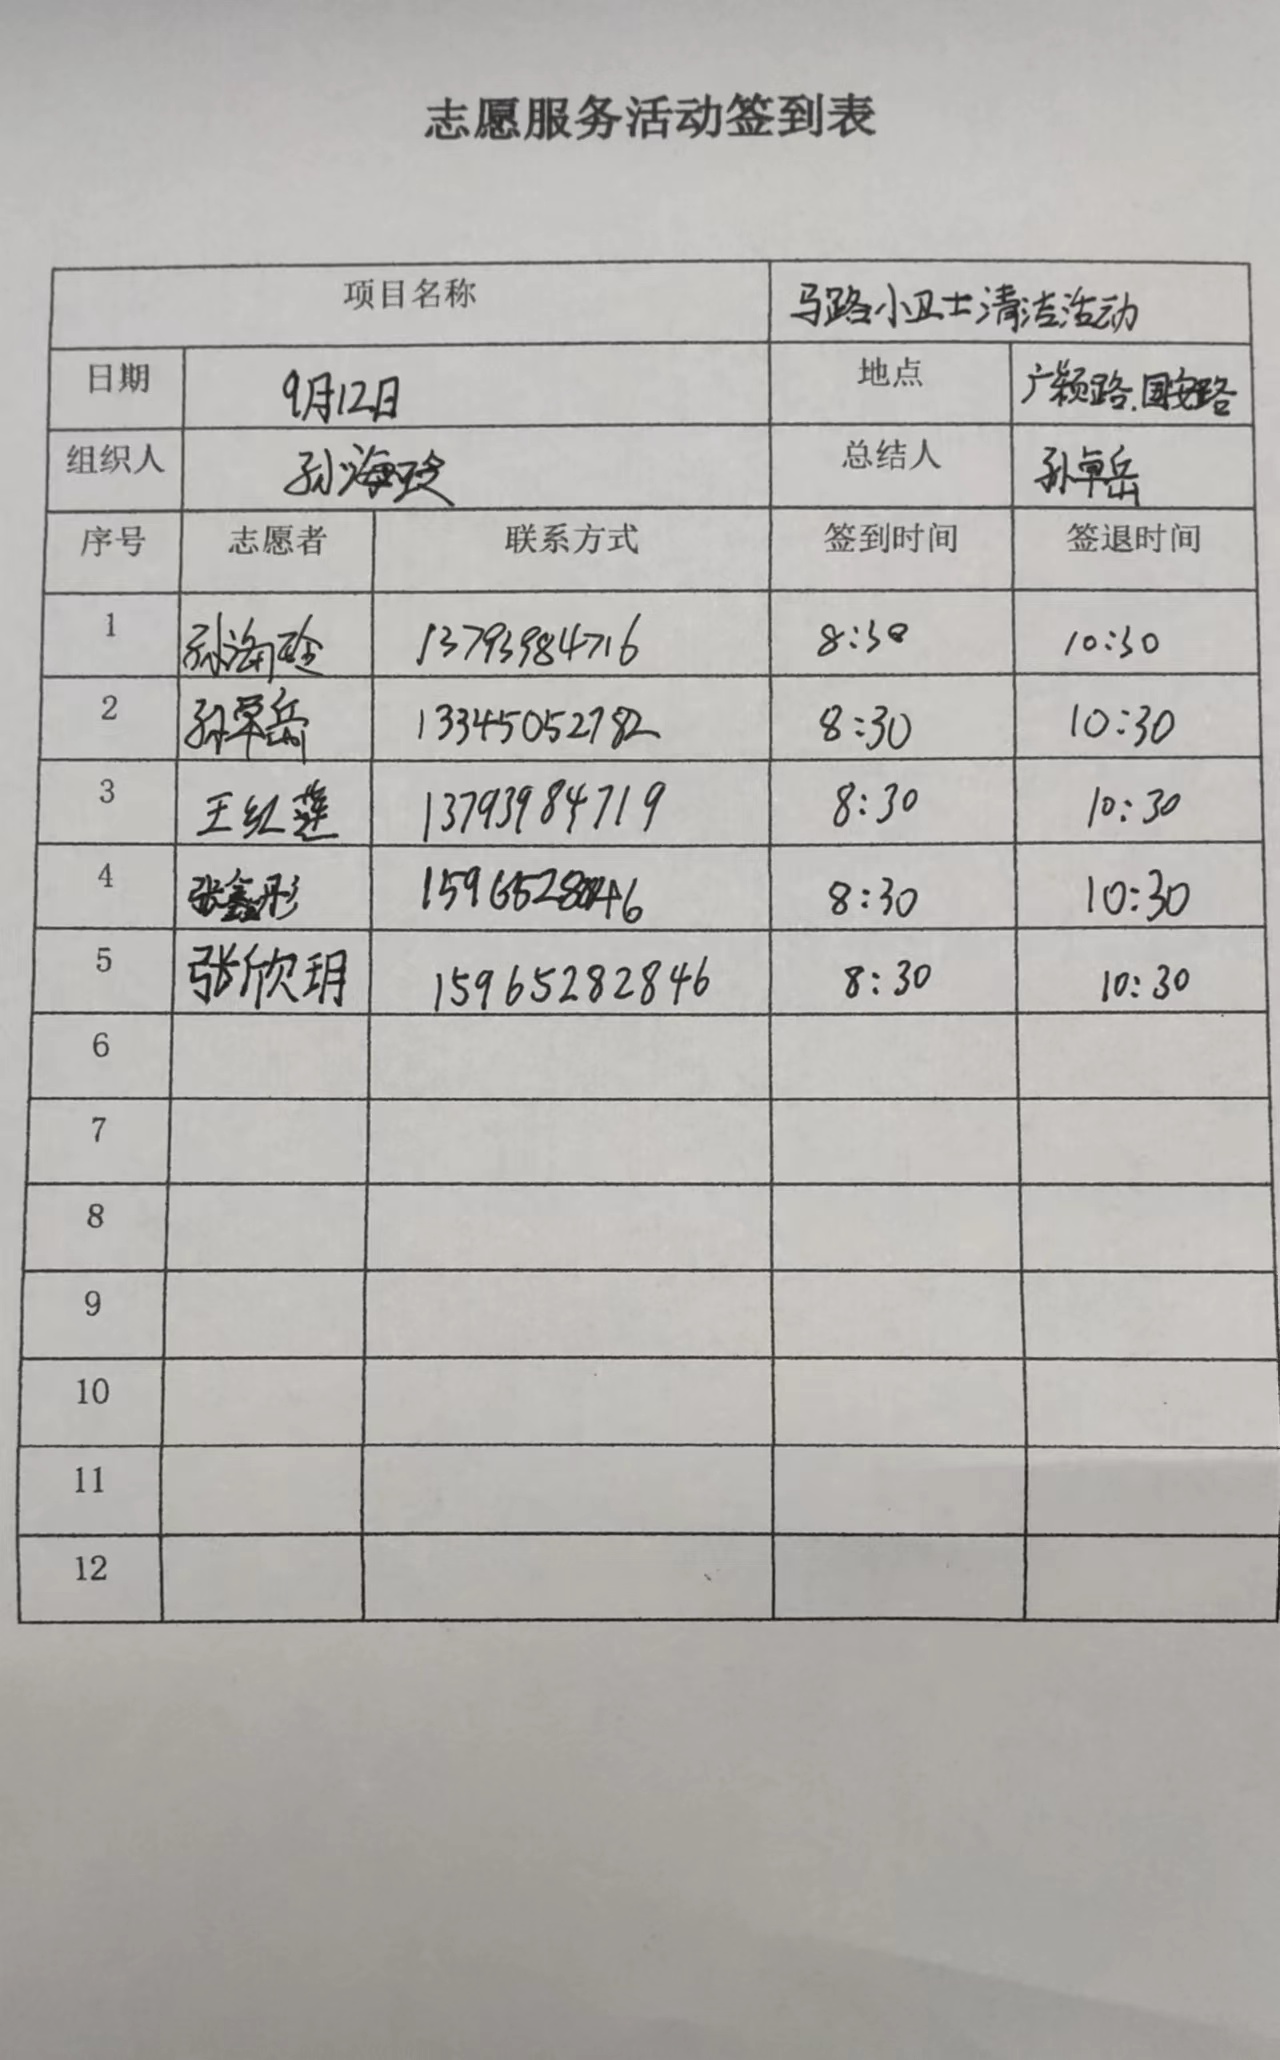 志愿服务活动签到表
项目名称 马路小卫士清洁活动
日期 9月12日 地点 广颖路、国安路
组织人 孙海玲 总结人 孙卓岳
序号 志愿者 联系方式 签到时间 签退时间
1 孙海玲 13793984716 8:30 10:30
2 孙卓岳 13345052782 8:30 10:30
3 王红莲 13793984719 8:30 10:30
4 张鑫彤 8:30 10:30
5 张欣玥 15965282846 8:30 10:30
6
7
8
9
10
11
12